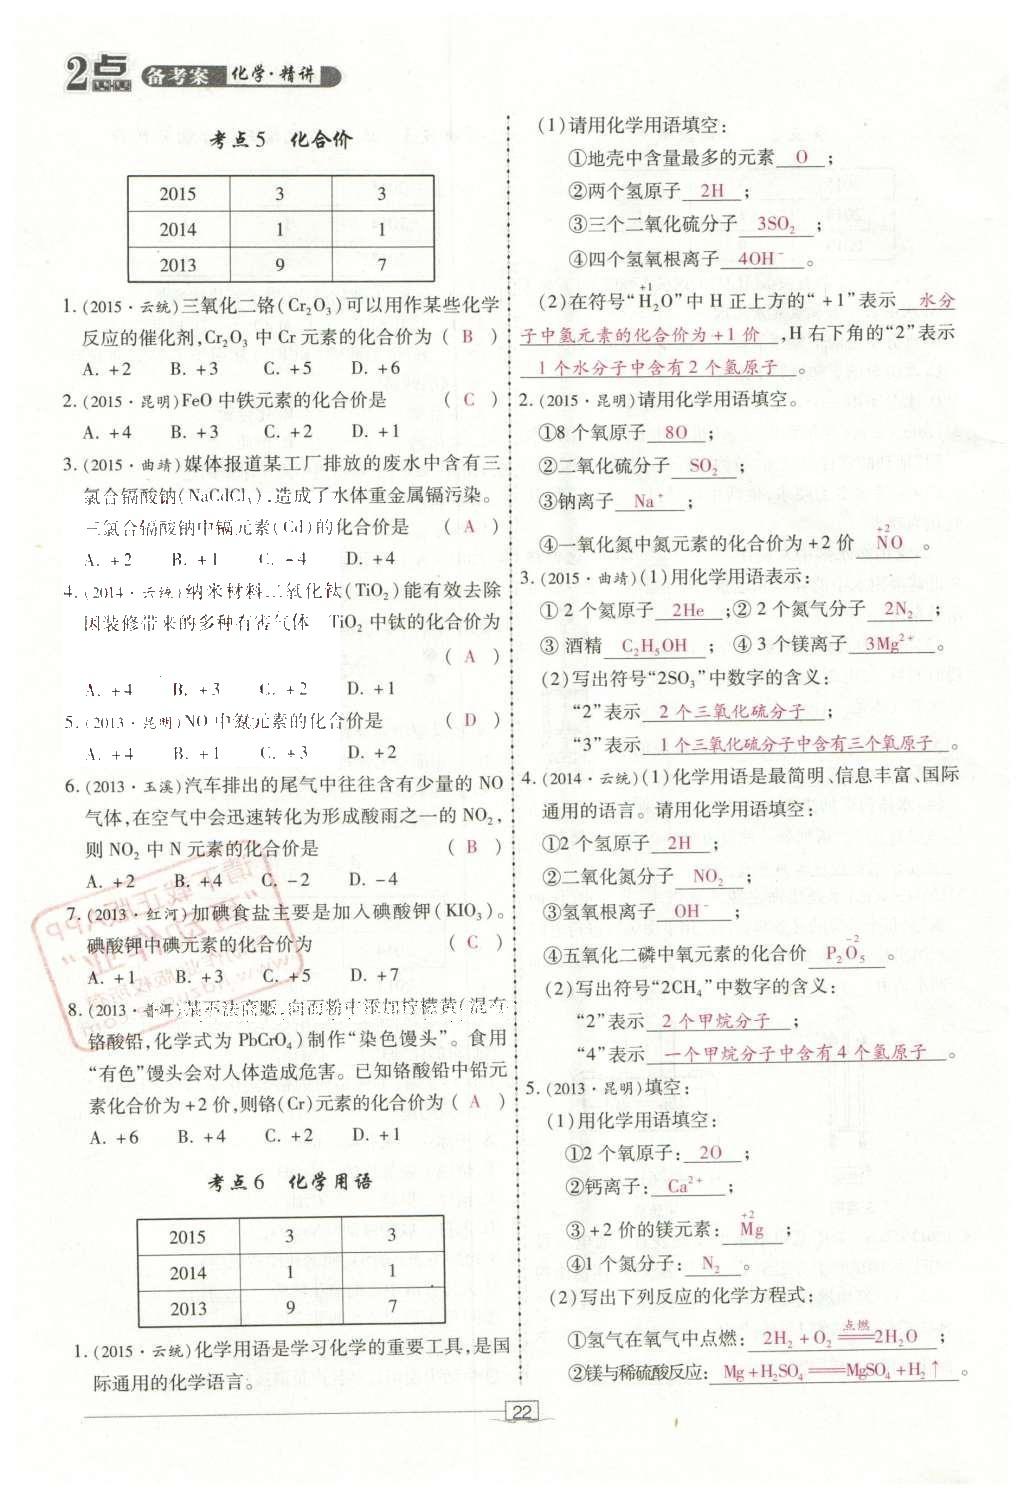 2点 备考案 化学·精讲
考点5 化合价
2015 3 3
2014 1 1
2013 9 7
1.(2015·云统)三氧化二铬(Cr₂O₃)可以用作某些化学
反应的催化剂,Cr₂O₃ 中 Cr 元素的化合价为 ( B )
A. +2 B. +3 C. +5 D. +6
2.(2015·昆明)FeO 中铁元素的化合价是 ( C )
A. +4 B. +3 C. +2 D. +1
3.(2015·曲靖)媒体报道某工厂排放的废水中含有三
氯合镉酸钠(NaCdCl₃),造成了水体重金属镉污染。
三氯合镉酸钠中镉元素(Cd)的化合价是 ( A )
A. +2 B. +1 C. -4 D. +4
4.(2014·云统)纳米材料二氧化钛(TiO₂)能有效去除
因装修带来的多种有害气体 TiO₂ 中钛的化合价为
( A )
A. +4 B. +3 C. +2 D. +1
5.(2013·昆明)NO 中氮元素的化合价是 ( D )
A. +4 B. +1 C. +3 D. +2
6.(2013·玉溪)汽车排出的尾气中往往含有少量的 NO
气体,在空气中会迅速转化为形成酸雨之一的 NO₂,
则 NO₂ 中 N 元素的化合价是 ( B )
A. +2 B. +4 C. -2 D. -4
7.(2013·红河)加碘食盐主要是加入碘酸钾(KIO₃)。
碘酸钾中碘元素的化合价为 ( C )
A. +1 B. +3 C. +5 D. +7
8.(2013·普洱)某不法商贩,向面粉中添加柠檬黄(混有
铬酸铅,化学式为 PbCrO₄)制作“染色馒头”。食用
“有色”馒头会对人体造成危害。已知铬酸铅中铅元
素化合价为+2价,则铬(Cr)元素的化合价为( A )
A. +6 B. +4 C. +2 D. +1
考点6 化学用语
2015 3 3
2014 1 1
2013 9 7
1.(2015·云统)化学用语是学习化学的重要工具,是国
际通用的化学语言。
(1)请用化学用语填空:
①地壳中含量最多的元素 O ;
②两个氢原子 2H ;
③三个二氧化硫分子 3SO₂ ;
④四个氢氧根离子 4OH⁻ 。
+1
(2)在符号“H₂O”中 H 正上方的“+1”表示 水分
子中氢元素的化合价为+1价 ,H 右下角的“2”表示
1个水分子中含有2个氢原子 。
2.(2015·昆明)请用化学用语填空。
①8 个氧原子 8O ;
②二氧化硫分子 SO₂ ;
③钠离子 Na⁺ ;
+2
④一氧化氮中氮元素的化合价为+2价 NO 。
3.(2015·曲靖)(1)用化学用语表示:
① 2 个氦原子 2He ;② 2 个氮气分子 2N₂ ;
③ 酒精 C₂H₅OH ; ④ 3 个镁离子 3Mg²⁺ 。
(2)写出符号“2SO₃”中数字的含义:
“2”表示 2个三氧化硫分子 ;
“3”表示 1个三氧化硫分子中含有三个氧原子 。
4.(2014·云统)(1)化学用语是最简明、信息丰富、国际
通用的语言。请用化学用语填空:
①2 个氢原子 2H ;
②二氧化氮分子 NO₂ ;
③氢氧根离子 OH⁻ ;
-2
④五氧化二磷中氧元素的化合价 P₂O₅ 。
(2)写出符号“2CH₄”中数字的含义:
“2”表示 2个甲烷分子 ;
“4”表示 一个甲烷分子中含有4个氢原子 。
5.(2013·昆明)填空:
(1)用化学用语填空:
①2 个氧原子: 2O ;
②钙离子: Ca²⁺ ;
+2
③+2价的镁元素: Mg ;
④1 个氮分子: N₂ 。
(2)写出下列反应的化学方程式:
点燃
①氢气在氧气中点燃: 2H₂+O₂══2H₂O ;
②镁与稀硫酸反应: Mg+H₂SO₄══MgSO₄+H₂↑ 。
22